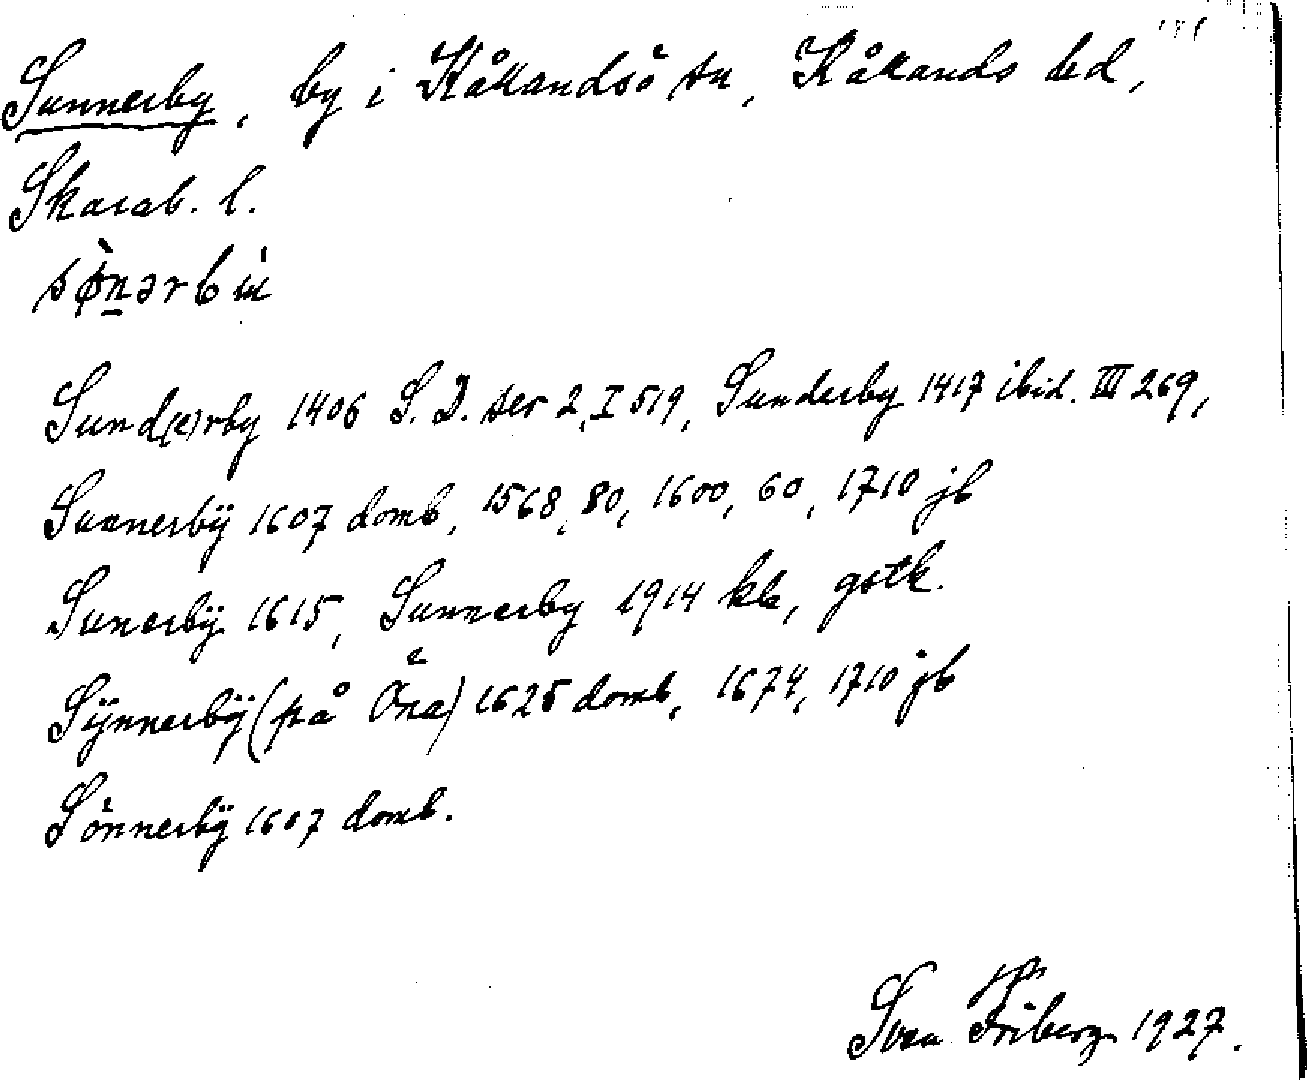 Sunnerby, by i Kållandsö sn, Kållands hd,
Skarab. l.
sø̀nərbẁ
Sund(e)rby 1406 S. D. ser 2, I 519, Sunderby 1417 ibid. III 269,
Sunnerbÿ 1607 domb, 1568, 80, 1600, 60, 1710 jb
Sunerbÿ 1615, Sunnerby 1914 kla, gstk.
Sÿnnerbÿ (på Öna) 1625 domb, 1674, 1710 jb
Sönnerbÿ 1607 domb.
Sven Friberg 1927.